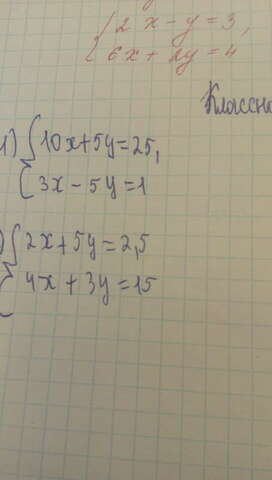 { 2x - y = 3,
6x + 2y = 4
Классн
1) { 10x + 5y = 25,
3x - 5y = 1
) { 2x + 5y = 2,5
4x + 3y = 15